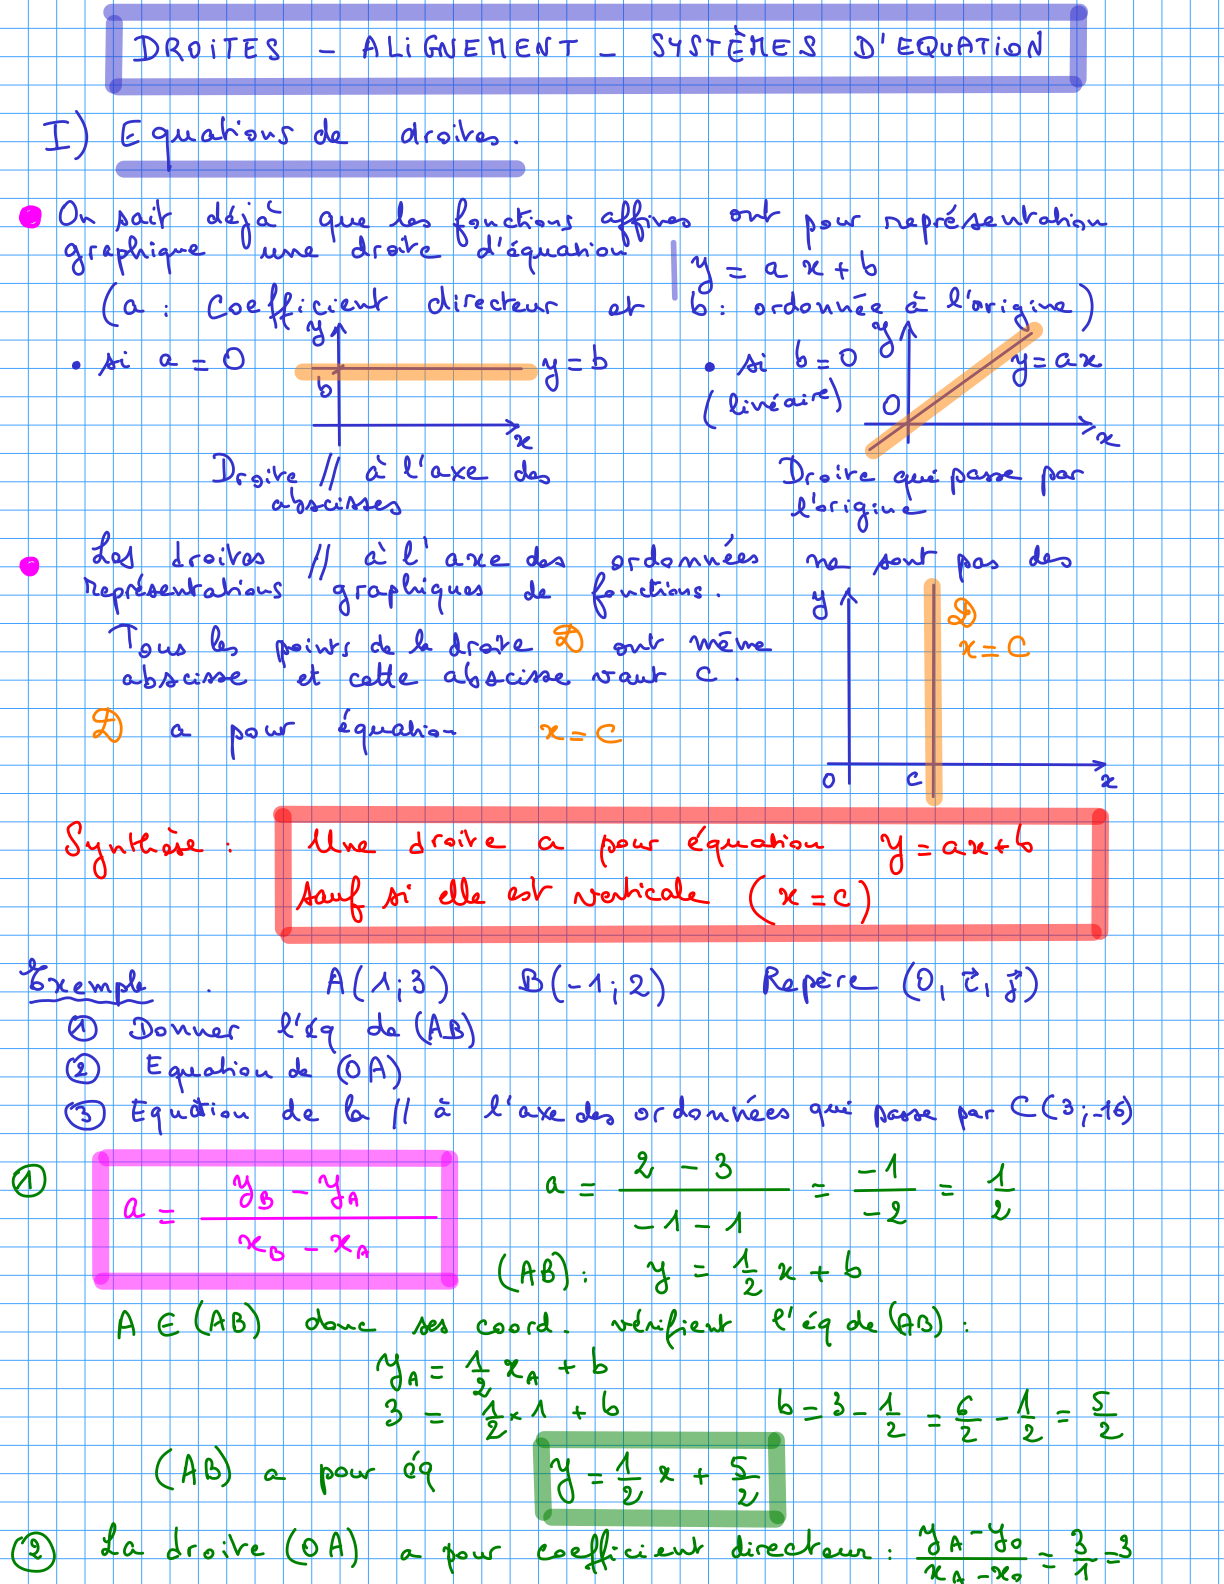 DROITES - ALIGNEMENT - SYSTÈMES D'EQUATION
I) Equations de droites.
On sait déjà que les fonctions affines ont pour représentation
graphique une droite d'équation
y = a x + b
(a : Coefficient directeur et b : ordonnée à l'origine)
• si a = 0
y
b
y = b
x
• si b = 0
(linéaire)
y
0
y = ax
x
Droite // à l'axe des
abscisses
Droite qui passe par
l'origine
Les droites // à l'axe des ordonnées ne sont pas des
représentations graphiques de fonctions.
Tous les points de la droite D ont même
abscisse et cette abscisse vaut c.
D a pour équation x = c
y
D
x = c
0
c
x
Synthèse :
Une droite a pour équation y = ax + b
sauf si elle est verticale (x = c)
Exemple . A(1;3) B(-1;2) Repère (O, i⃗, j⃗)
① Donner l'éq de (AB)
② Equation de (OA)
③ Equation de la // à l'axe des ordonnées qui passe par C(3;-16)
① a = (y_B - y_A)/(x_B - x_A) a = (2 - 3)/(-1 - 1) = (-1)/(-2) = 1/2
(AB): y = 1/2 x + b
A ∈ (AB) donc ses coord. vérifient l'éq de (AB) :
y_A = 1/2 x_A + b
3 = 1/2 × 1 + b b = 3 - 1/2 = 6/2 - 1/2 = 5/2
(AB) a pour éq y = 1/2 x + 5/2
② La droite (OA) a pour coefficient directeur : (y_A - y_O)/(x_A - x_O) = 3/1 = 3